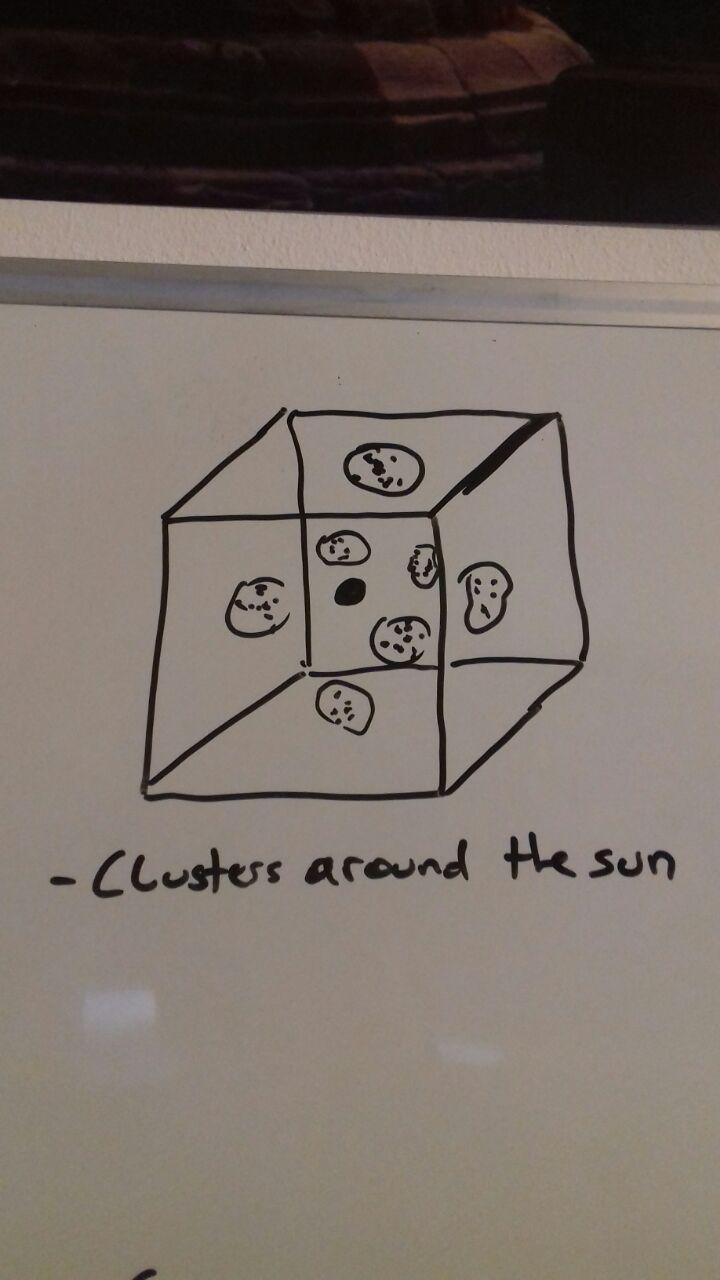 - Clusters around the sun